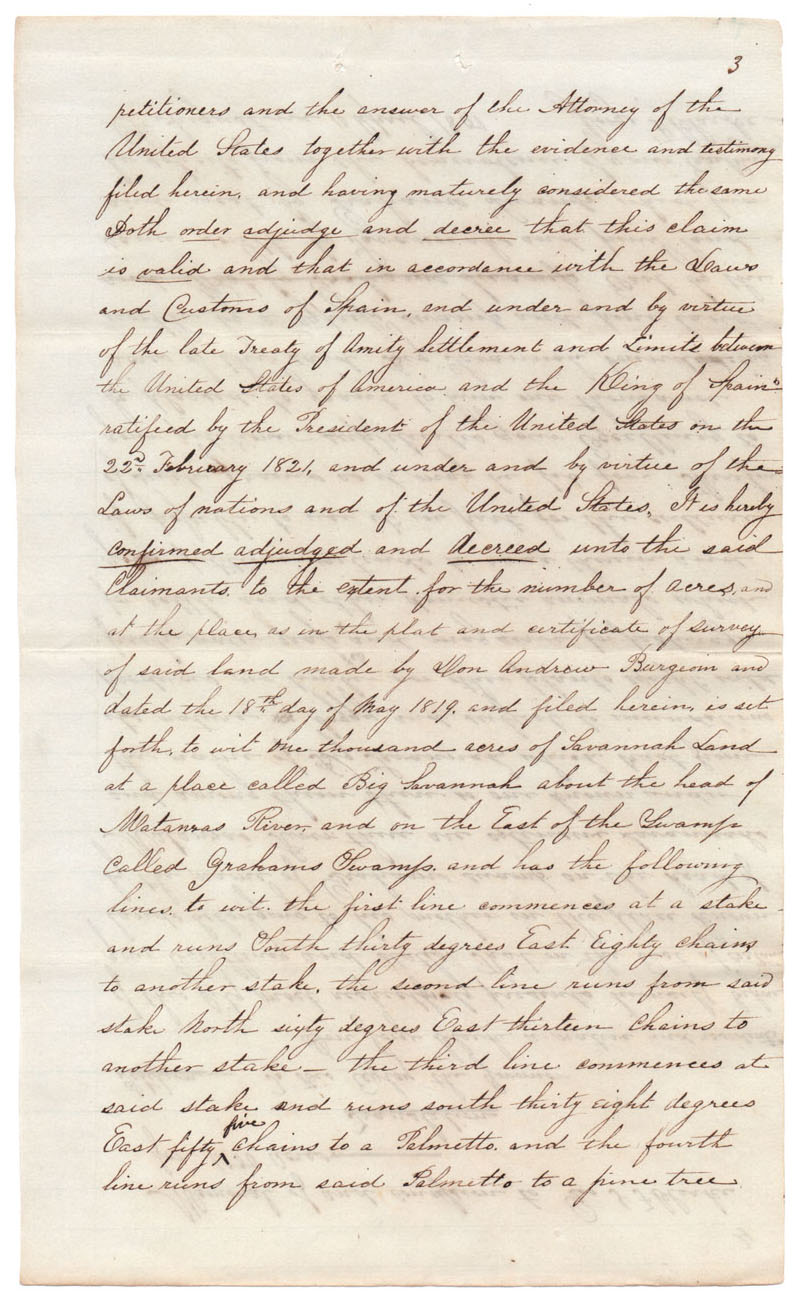 3
petitioners and the answer of the Attorney of the
United States together with the evidence and testimony
filed herein, and having maturely considered the same
Doth order adjudge and decree that this claim
is valid and that in accordance with the Laws
and Customs of Spain, and under and by virtue
of the late Treaty of Amity Settlement and Limits between
the United States of America and the King of Spain"
ratified by the President of the United States on the
22d. February 1821, and under and by virtue of the
Laws of nations and of the United States, It is hereby
confirmed adjudged and decreed unto the said
Claimants, to the extent for the number of acres, and
at the place, as in the plat and certificate of survey
of said land made by Don Andrew Burgevin and
dated the 18th day of May 1819. and filed herein, is set
forth, to wit One thousand acres of Savannah Land
at a place called Big Savannah about the head of
Matanzas River, and on the East of the Swamp
called Grahams Swamp. and has the following
lines, to wit. the first line commences at a stake
and runs South thirty degrees East Eighty chains
to another stake, the second line runs from said
stake North sixty degrees East thirteen chains to
another stake — the third line commences at
said stake and runs south thirty eight degrees
East fifty five chains to a Palmetto. and the fourth
line runs from said Palmetto to a pine tree